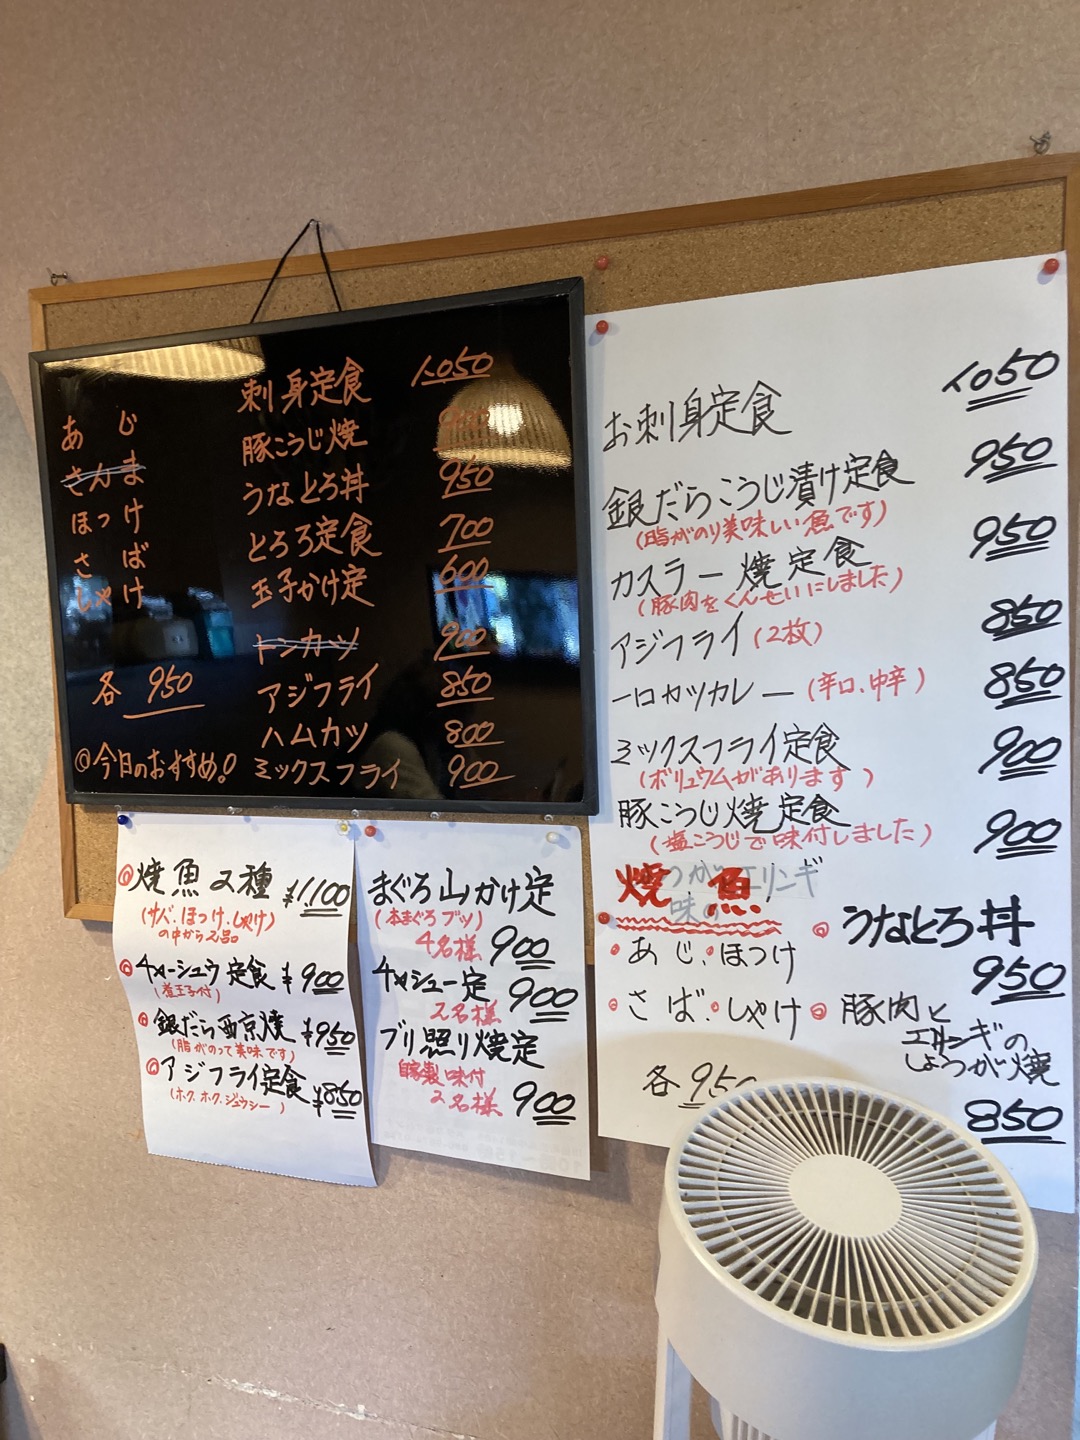 あじ
さんま
ほっけ
さば
しゃけ
各 950
◎今日のおすすめ!
刺身定食 1,050
豚こうじ焼
うなとろ丼 950
とろろ定食 700
玉子かけ定 600
トンカツ 900
アジフライ 850
ハムカツ 800
ミックスフライ 900
◎焼魚2種 ¥1,100
(サバ、ほっけ、しゃけ)
の中から2品
◎チャーシュウ定食 ¥900
◎銀だら西京焼 ¥950
(脂がのって美味です)
◎アジフライ定食 ¥850
(ホク、ホク、ジュウシー)
まぐろ山かけ定
(本まぐろブツ)
4名様 900
チャシュー定
2名様 900
ブリ照り焼定
自家製味付
2名様 900
お刺身定食 1,050
銀だらこうじ漬け定食 950
(脂がのり美味しい魚です)
カスラー焼定食 950
(豚肉をくんせいにしました)
アジフライ(2枚) 850
一口カツカレー(辛口、中辛) 850
ミックスフライ定食 900
(ボリュウムがあります)
豚こうじ焼定食 900
(塩こうじで味付しました)
焼魚
・あじ・ほっけ
・さば・しゃけ
各 950
◎うなとろ丼
950
◎豚肉と
エリンギの
しょうが焼
850